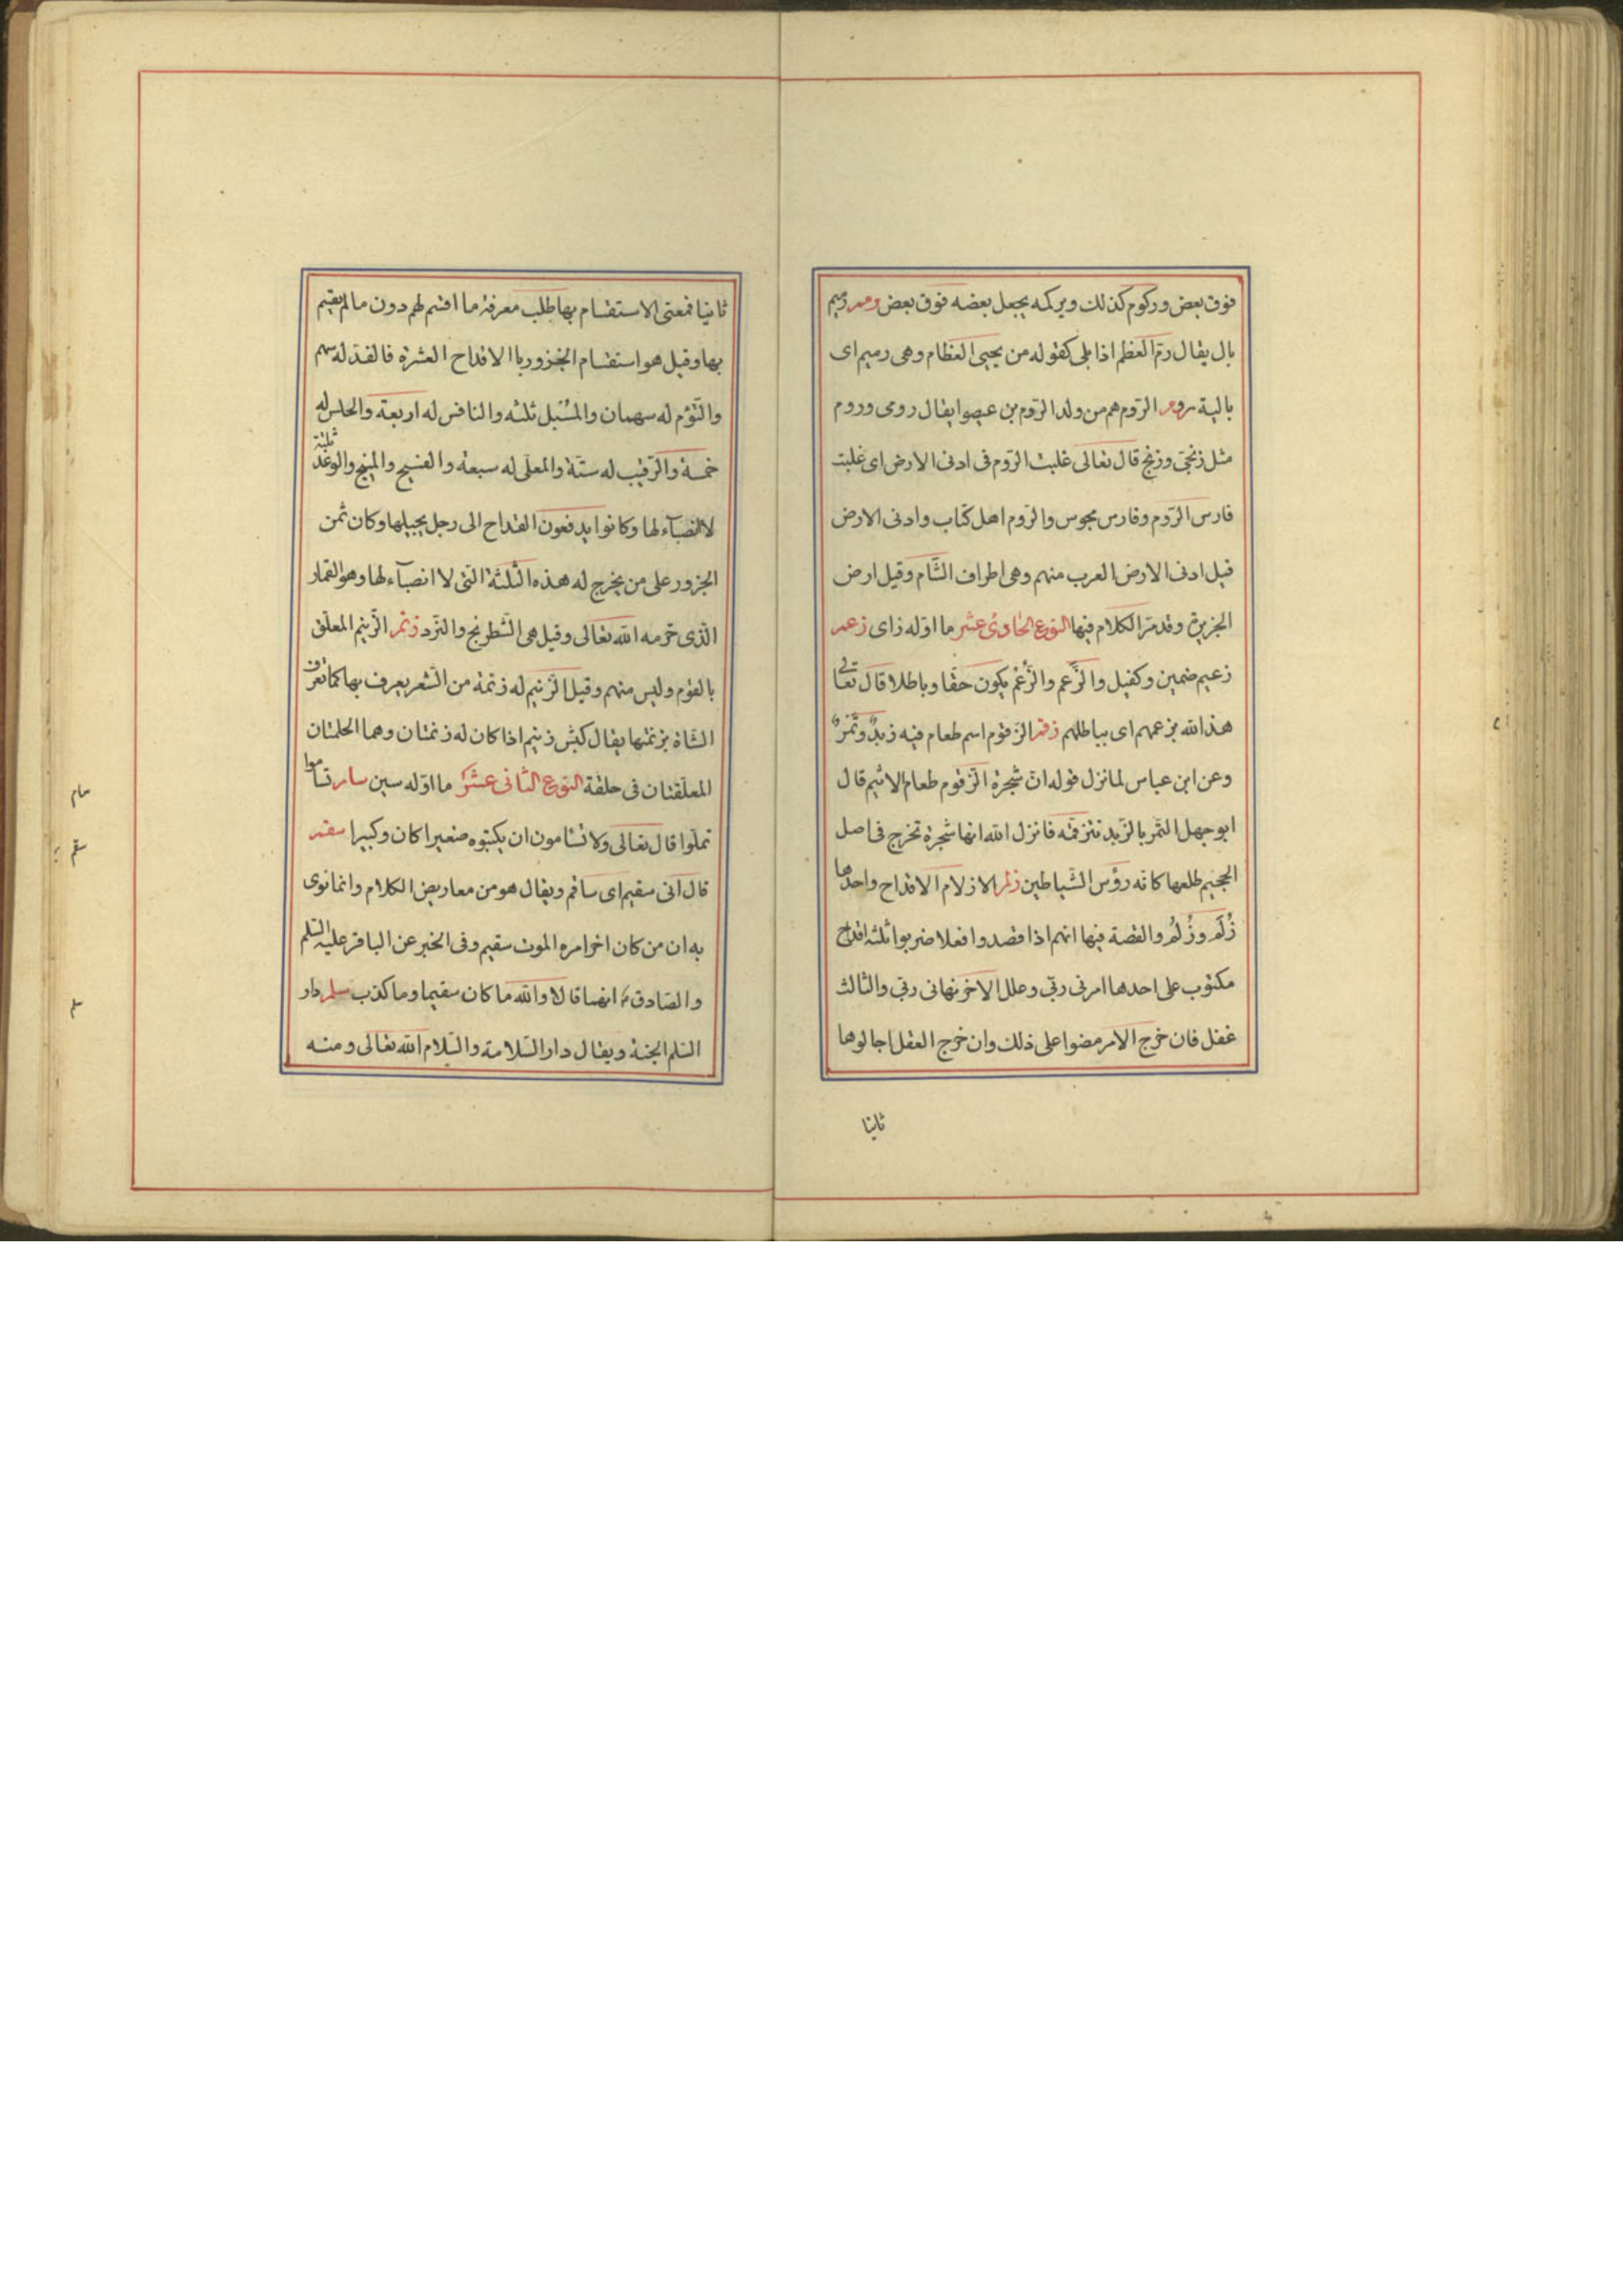 فوق بعض وركوم كذلك ويركمه يجعل بعضه فوق بعض رمم رميم
بال يقال رمّ العظم اذا بلى كقوله من يحيى العظام وهى رميم اى
بالية روم الرّوم هم من ولد الرّوم بن عيصو يقال رومى وروم
مثل زنجىّ وزنج قال تعالى غلبت الرّوم فى ادنى الارض اى غلبت
فارس الرّوم وفارس مجوس والرّوم اهل كتاب وادنى الارض
قيل ادنى الارض العرب منهم وهى اطراف الشّام وقيل ارض
الجزيرة وقد مرّ الكلام فيها النّوع الحادى عشر ما اوّله زاى زعم
زعيم ضمين وكفيل والزّعم والزُّعْم يكون حقّا وباطلا قال تعالى
هذا لله بزعمهم اى بباطلهم زقم الزّقوم اسم طعام فيه زبدٌ وتَمْرٌ
وعن ابن عباس لما نزل قوله انّ شجرة الزّقوم طعام الاثيم قال
ابو جهل التّمر بالزّبد نتزقمّه فانزل الله انها شجرة تخرج فى اصل
الجحيم طلعها كانّه رؤس الشّياطين زلم الازلام الاقداح واحدها
زُلَم وزُلْم والقصة فيها انهم اذا قصدوا فعلا ضربوا ثلثة اقداح
مكتوب على احدها امرنى ربّى وعلى الاخر نهانى ربّى والثالث
غفل فان خرج الامر مضوا على ذلك وان خرج الغفل اجالوها
ثانيا
ثانيا فمعنى الاستقسام بها طلب معرفة ما اقسم لهم دون ما لم يقسم
بها وقيل هو استقسام الجزور بالاقداح العشرة فالفذّ له سهم
والتّؤم له سهمان والمُسْبل ثلثه والنافس له اربعة والحلس له
خمسة والرّقيب له ستّة والمعلّى له سبعة والفسيح والمنيح والوغد
ثلثة
لا انصبآء لها وكانوا يدفعون القداح الى رجل يجيلها وكان ثمن
الجزور على من يخرج له هذه الثّلثة التى لا انصبآء لها وهو القمار
الّذى حرّمه الله تعالى وقيل هى الشّطرنج والنّرد زنم الزّنيم المعلّق
بالقوم وليس منهم وقيل الزّنيم له زنمة من الشّعر يعرف بها كما تعرف
الشّاة بزنمتها يقال كبش زنيم اذا كان له زنمتان وهما الحلمتان
المعلّقتان فى حلقة النّوع الثّانى عشر ما اوّله سين سام تساموا
تملّوا قال تعالى ولا تسامون ان يكتبوه صغيرا كان وكبيرا سقم
قال انّى سقيم اى ساقم ويقال هو من معاريض الكلام وانما نوى
به ان من كان اخر امره الموت سقيم وفى الخبر عن الباقر عليه السّلم
والصّادق ع انهما قالا والله ما كان سقيما وما كذب سلم دار
السّلم الجنة ويقال دار السّلامة والسّلام الله تعالى ومنه
سام
سقم
سلم